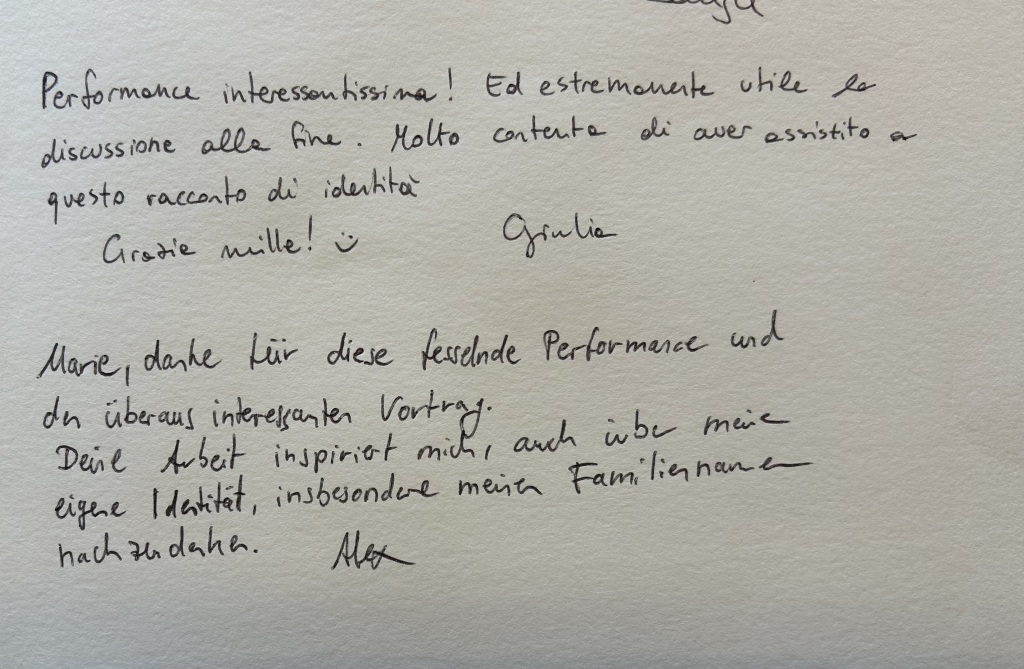 Performance interessantissima! Ed estremamente utile la
discussione alla fine. Molto contenta di aver assistito a
questo racconto di identità
Grazie mille! :) Giulia
Marie, danke für diese fesselnde Performance und
den überaus interessanten Vortrag.
Deine Arbeit inspiriert mich, auch über meine
eigene Identität, insbesondere meinen Familiennamen
nachzudenken. Alex